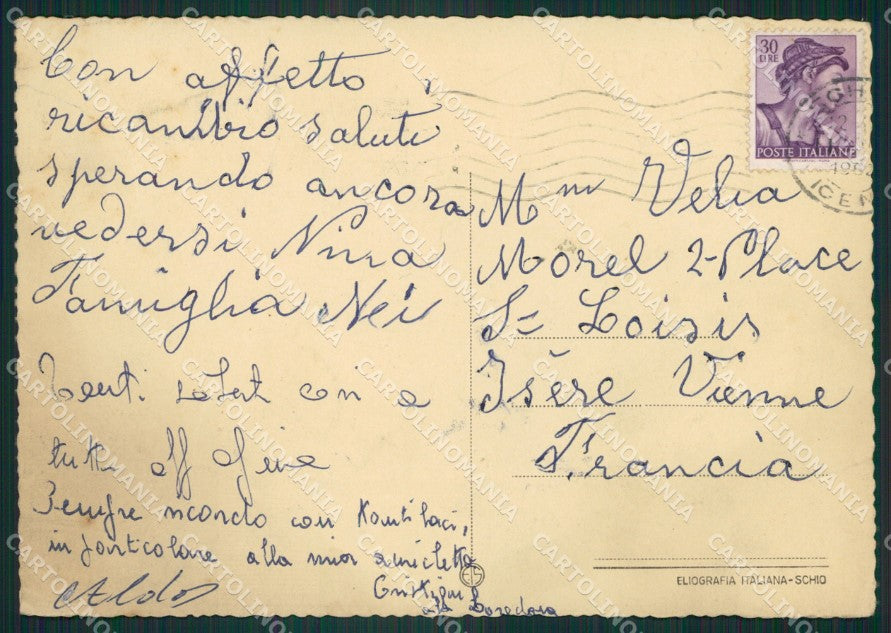 Con affetto
ricambio saluti
sperando ancora
vedersi Nina
Famiglia Nei
Tanti saluti con a
tutti aff
Sempre ricordo con tanti baci,
in particolare alla mia amichetta
Cristigu
Aldo
30
LIRE
POSTE ITALIANE
Mm Velia
Morel 2-Place
St Loisis
Isère Vienne
Francia
ELIOGRAFIA ITALIANA-SCHIO
CARTOLINOMANIA